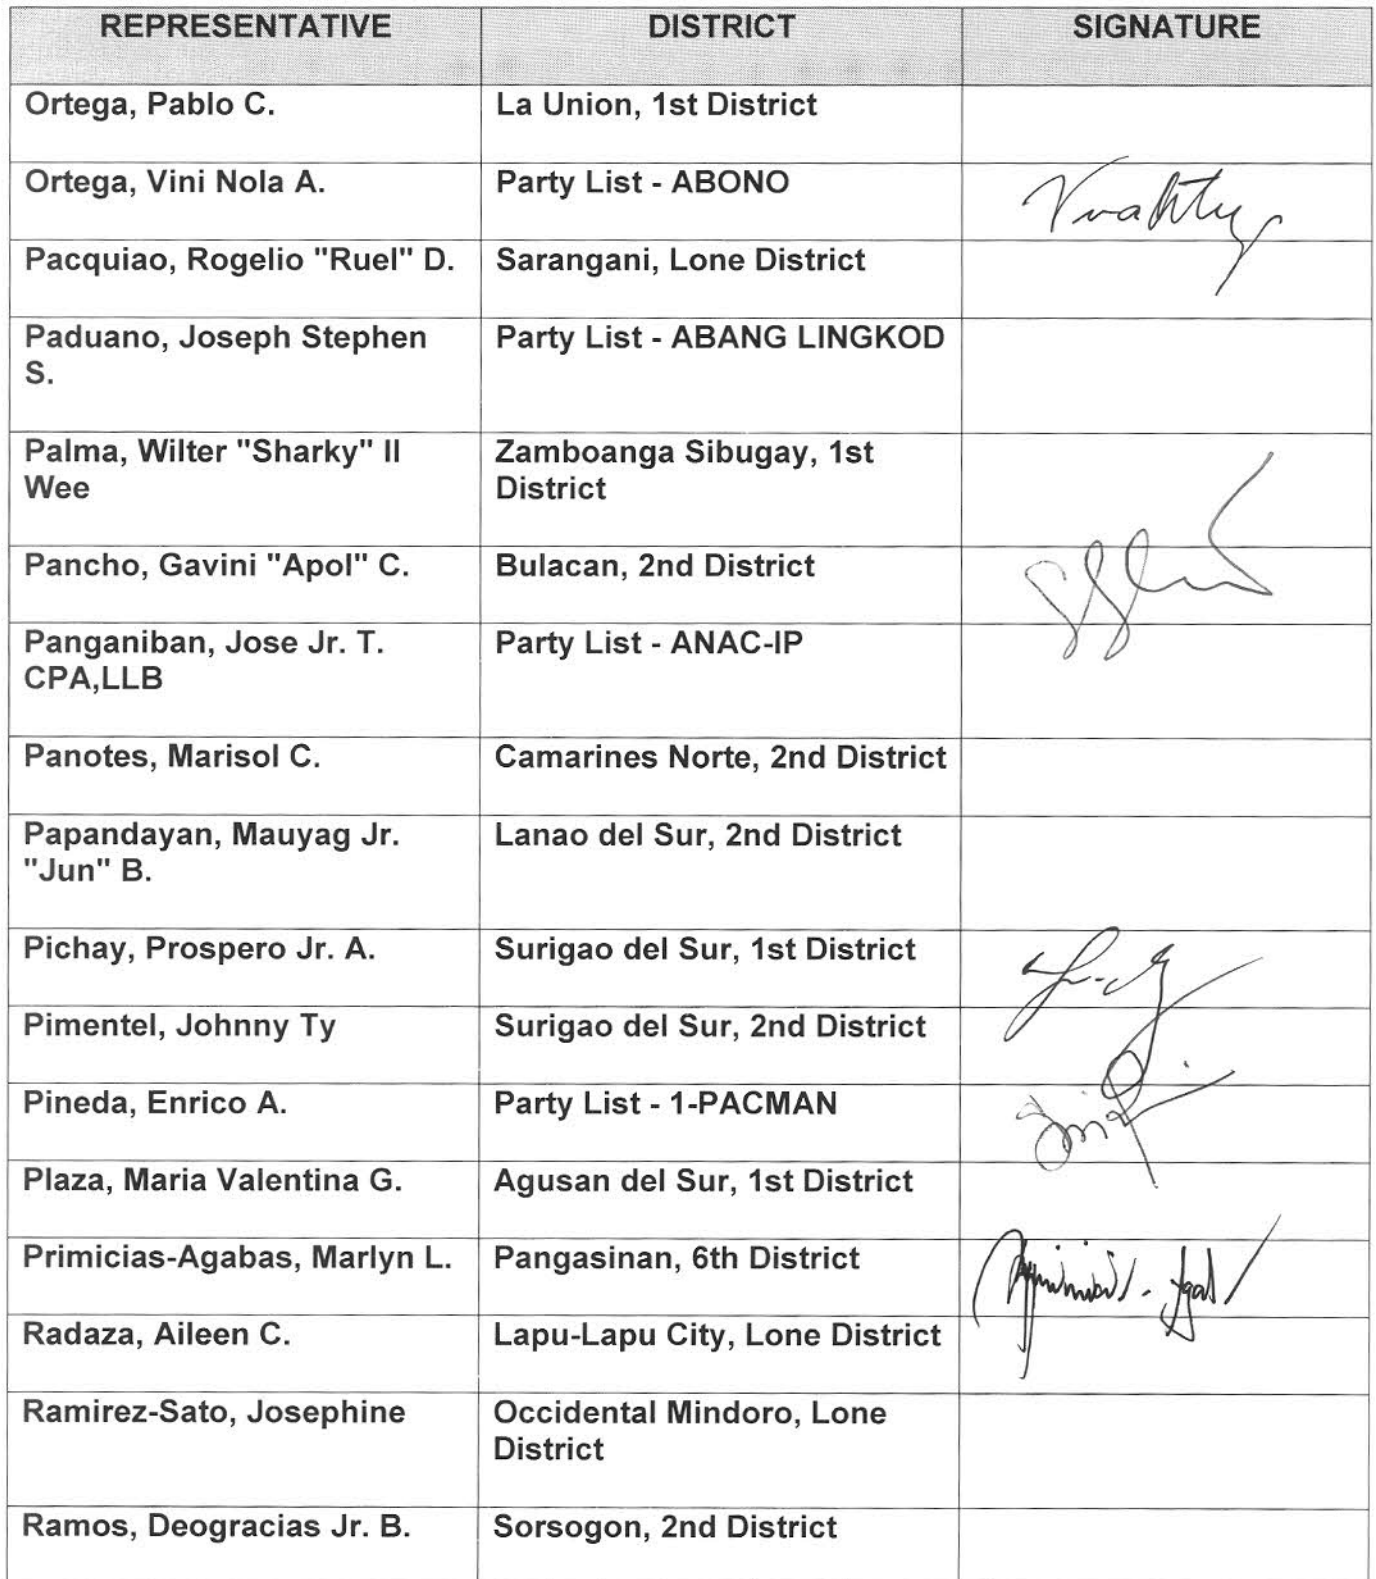 REPRESENTATIVE DISTRICT SIGNATURE
Ortega, Pablo C. La Union, 1st District
Ortega, Vini Nola A. Party List - ABONO
Pacquiao, Rogelio "Ruel" D. Sarangani, Lone District
Paduano, Joseph Stephen Party List - ABANG LINGKOD
S.
Palma, Wilter "Sharky" II Zamboanga Sibugay, 1st
Wee District
Pancho, Gavini "Apol" C. Bulacan, 2nd District
Panganiban, Jose Jr. T. Party List - ANAC-IP
CPA,LLB
Panotes, Marisol C. Camarines Norte, 2nd District
Papandayan, Mauyag Jr. Lanao del Sur, 2nd District
"Jun" B.
Pichay, Prospero Jr. A. Surigao del Sur, 1st District
Pimentel, Johnny Ty Surigao del Sur, 2nd District
Pineda, Enrico A. Party List - 1-PACMAN
Plaza, Maria Valentina G. Agusan del Sur, 1st District
Primicias-Agabas, Marlyn L. Pangasinan, 6th District
Radaza, Aileen C. Lapu-Lapu City, Lone District
Ramirez-Sato, Josephine Occidental Mindoro, Lone
District
Ramos, Deogracias Jr. B. Sorsogon, 2nd District